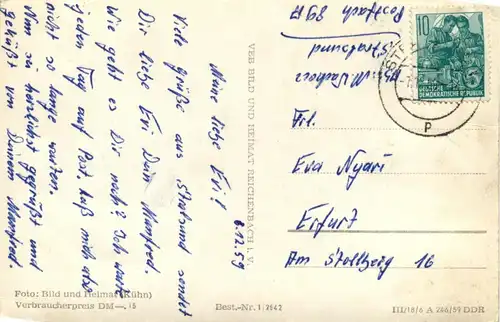 6.12.59
Meine liebe Evi!
Viele Grüße aus Stralsund sendet
Dir liebe Evi Dein Manfred.
Wie geht es Dir noch? Ich warte
jeden Tag auf Post laß mich aber
nicht so lange warten.
Nun sei herzlichst gegrüßt und
geküßt von Deinem Manfred.
VEB BILD UND HEIMAT REICHENBACH i. V.
Foto: Bild und Heimat (Kühn)
Verbraucherpreis DM —,15
Best.-Nr. 1/2642
Stralsund
Postfach 89
10
DEUTSCHE
DEMOKRATISCHE REPUBLIK
P
Frl.
Eva Nyari
Erfurt
Am Stollberg 16
III/18/6 A 266/59 DDR